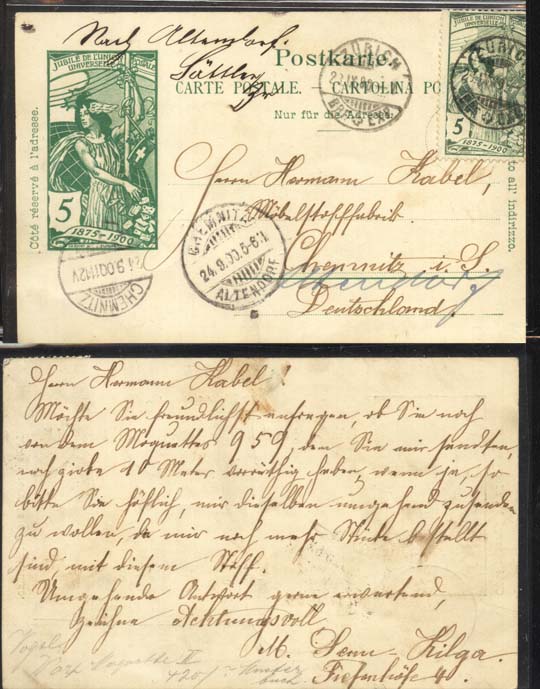 Nach Altendorf
JUBILÉ DE L'UNION
UNIVERSELLE POSTALE
5
1875-1900
Côté réservé à l'adresse.
Postkarte.
CARTE POSTALE. — CARTOLINA PO
Nur für die Adresse.
to all' indirizzo.
ZÜRICH
5
1875-1900
ZÜRICH
Herrn Hermann Kabel,
Möbelstofffabrik.
Chemnitz i. S.
Altendorf
Deutschland.
CHEMNITZ
24.9.00.5-6.N
ALTENDORF
24.9.00.11-12V
CHEMNITZ
Herrn Hermann Kabel!
Möchte Sie freundlichst anfragen, ob Sie noch
von dem Moquettes 959 den Sie mir sandten,
noch 10 Meter vorräthig haben, wenn ja, so
bitte Sie höflich, mir dieselben umgehend zusenden
zu wollen, da mir noch mehr Stücke bestellt
sind, mit diesem Stoff.
Umgehende Antwort gerne erwartend,
zeichne Achtungsvoll
M. Senn-Kilga.
Tiefenhöfe